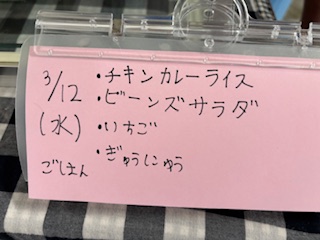 3/12
(水)
ごはん
・チキンカレーライス
・ビーンズサラダ
・いちご
・ぎゅうにゅう